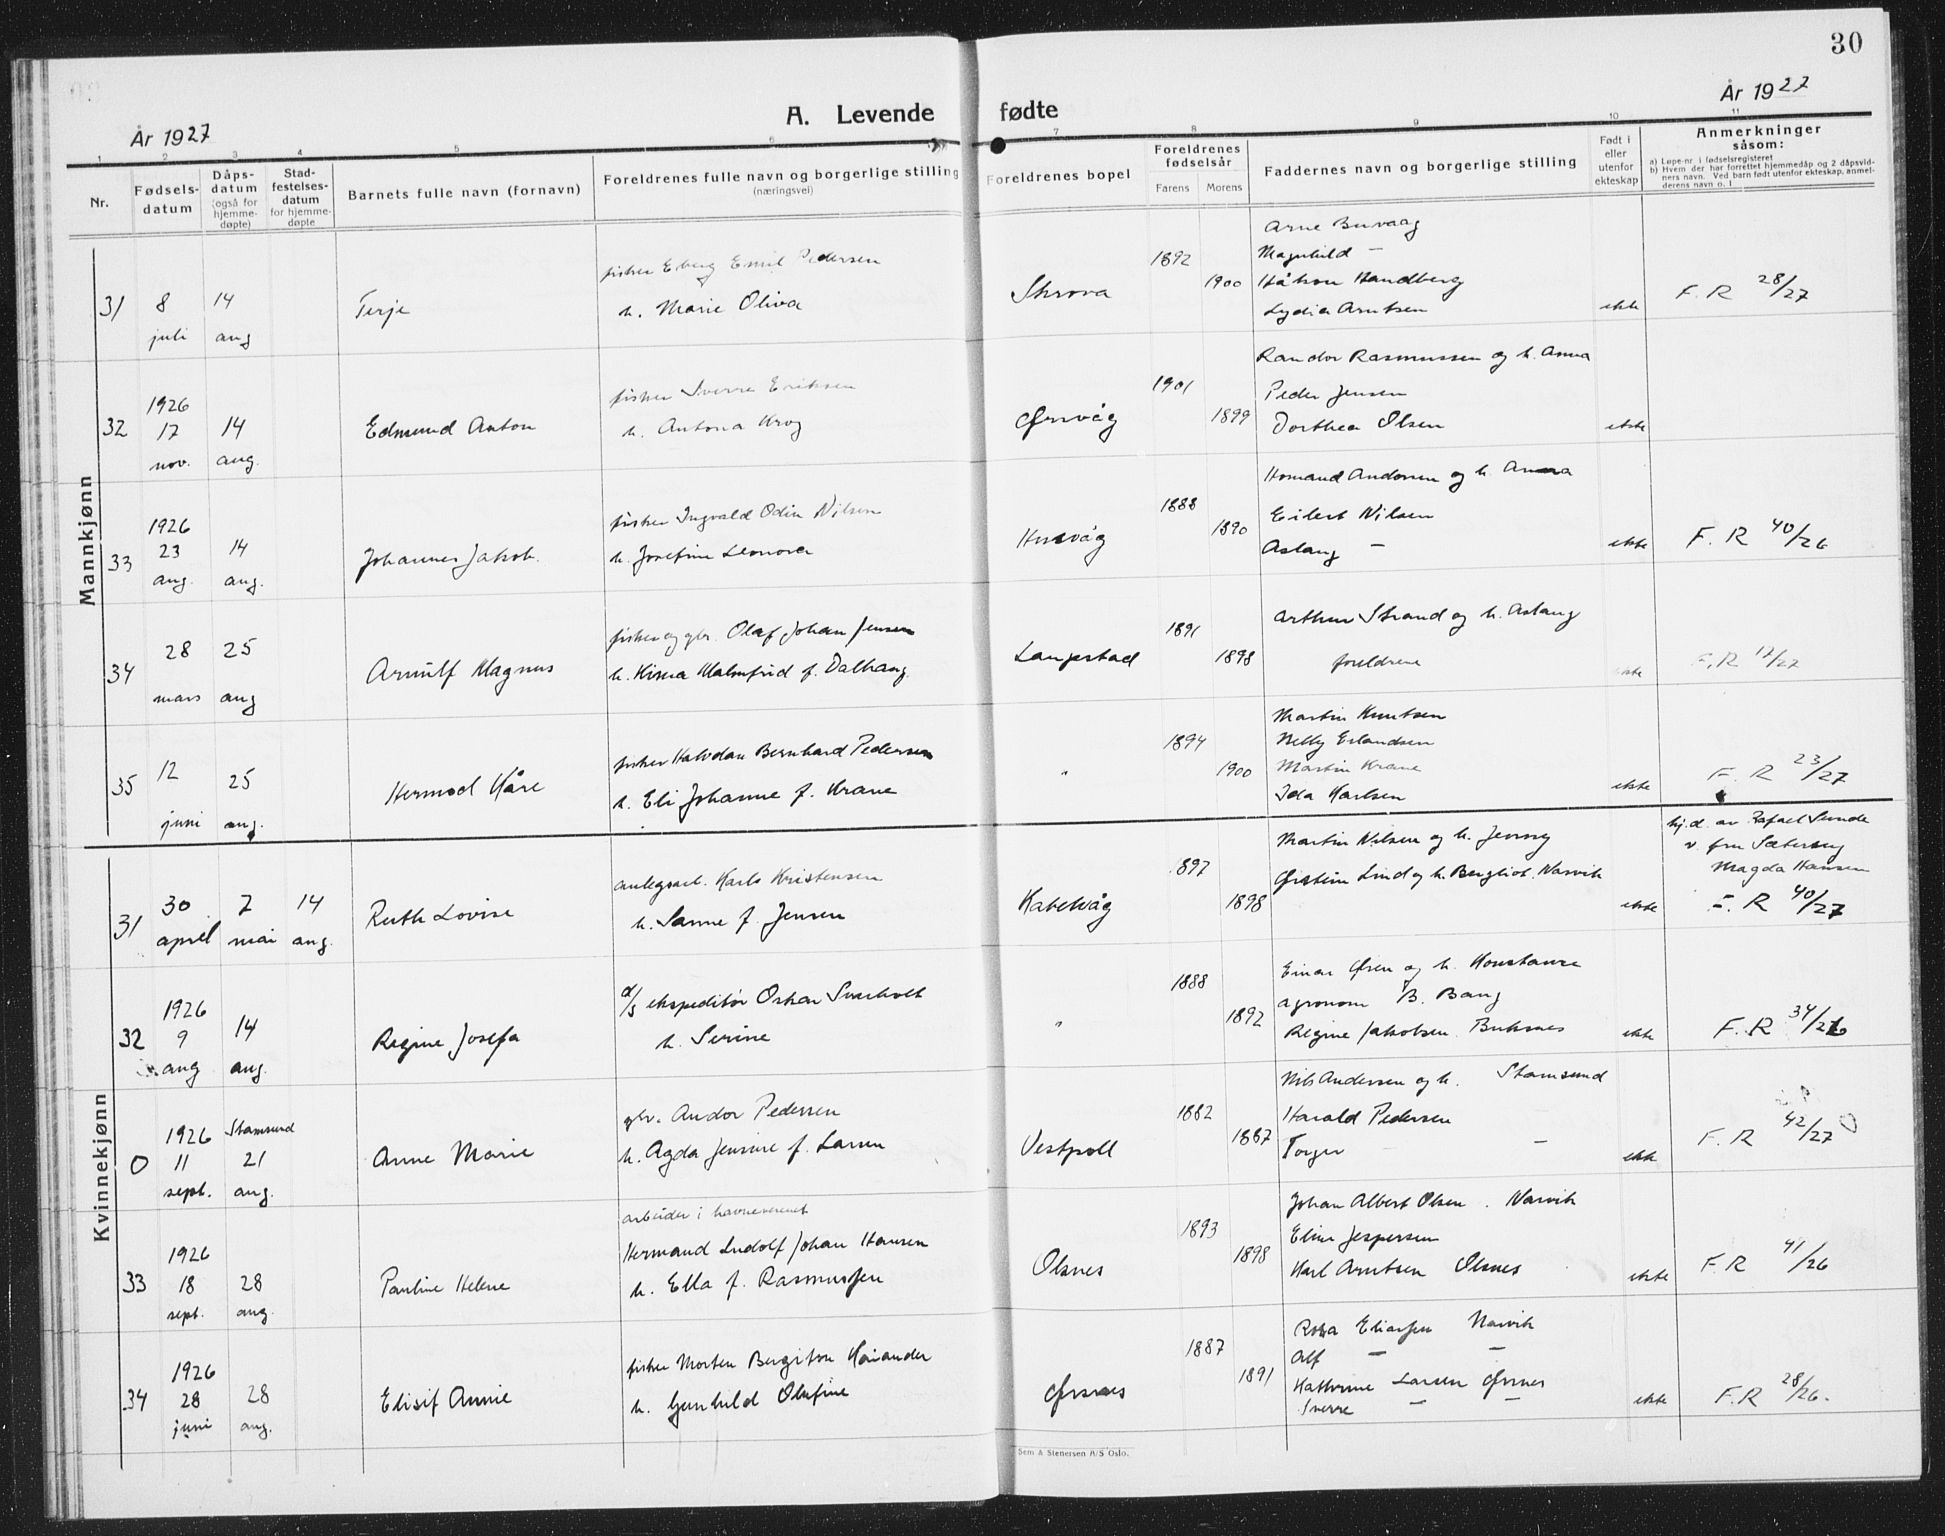 30
År 1927
A. Levende fødte
År 1927
1 2 3 4 5 6 7 8 9 10 11
Nr.
Fødsels-
datum
Dåps-
datum
(også for
hjemme-
døpte)
Stad-
festelses-
datum
for hjemme-
døpte
Barnets fulle navn (fornavn)
Foreldrenes fulle navn og borgerlige stilling
(næringsvei)
Foreldrenes bopel
Foreldrenes
fødselsår
Farens Morens
Faddernes navn og borgerlige stilling
Født i
eller
utenfor
ekteskap
Anmerkninger
såsom:
a) Løpe-nr i fødselsregisteret
b) Hvem der har forrettet hjemmedåp og 2 dåpsvid-
ners navn. Ved barn født utenfor ekteskap, anmel-
derens navn o. l
Mannkjønn
31 8 juli 14 aug
Terje
fisker Eberg Emil Pedersen
h. Marie Oliva
Skrova
1892 1900
Arne Buvaag
Magnhild —
Håkon Handberg
Lydia Arntsen
ekte
F. R 28/27
32 1926 17 nov. 14 aug.
Edmund Anton
fisker Sverre Eriksen
h. Antona Krog
Ørsvåg
1901 1899
Randor Rasmussen og h. Anna
Peder Jensen
Dorthea Olsen
ekte
33 1926 23 aug. 14 aug.
Johannes Jakob.
fisker Ingvald Odin Nilsen
h. Josefine Leonora
Husvåg
1888 1890
Andersen og h. Anna
Eilert Nilsen
Aslaug —
ekte
F. R 40/26
34 28 mars 25 aug
Arnulf Magnus
fisker og gbr. Olaf Johan Jensen
h. Kirsna Malmfrid f. Dalhaug.
Laupstad
1891 1898
Arthur Strand og h. Aslaug
foreldrene
ekte
F. R 17/27
35 12 juni 25 aug.
Hermod Kåre
fisker Halvdan Bernhard Pedersen
h. Eli Johanne f. Krane
"
1894 1900
Martin Knutsen
Nelly Erlandsen
Martin Krane
Ida Karlsen
ekte
F. R 23/27
Kvinnekjønn
31 30 april 7 mai 14 aug.
Ruth Lovise
anlegsarb. Karlo Kristensen
h. Sanne f. Jensen
Kabelvåg
1897 1898
Martin Nilsen og h. Jenny
Øistein Lind og h. Bergliot. Narvik
ekte
hj.d. av Rafael Sunde
v. fru Sæterøy
Magda Hansen
F. R 40/27
32 1926 9 aug 14 aug.
Regine Josefa
d/s ekspeditør Oskar Svarholt
h. Serine
"
1888 1892
Einar Øien og h. Konstanse
agronom B. Bang
Regine Jakobsen Buksnes
ekte
F. R 34/26
0 1926 11 sept. Stamsund 21 aug.
Anne Marie
gbr. Andor Pedersen
h. Agda Jensine f. Larsen
Vestpoll
1882 1887
Nils Andersen og h. Stamsund
Harald Pedersen
Torger — —
ekte
F. R 42/27 0
33 1926 18 sept. 28 aug.
Pauline Helene
arbeider i havnevesenet
Hermand Ludolf Johan Hansen
h. Ella f. Rasmussen
Olsnes
1893 1898
Johan Albert Olsen. Narvik
Eline Jespersen
Karl Arntsen Olsnes
ekte
F. R 41/26
34 1926 28 juni 28 aug.
Elisif Annie
fisker Morten Bergiton Kaiander
h. Gunhild Olufine
Ørsnes
1887 1891
Rosa Eliassen Narvik
Alf — —
Kathrine Larsen Ørsnes
Sverre — —
ekte
F. R 28/26.
Sem & Stenersen A/S Oslo.